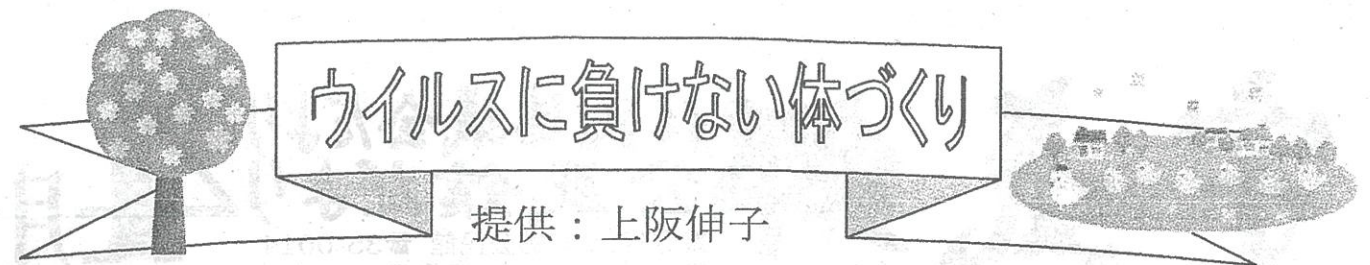 ウイルスに負けない体づくり
提供：上阪伸子